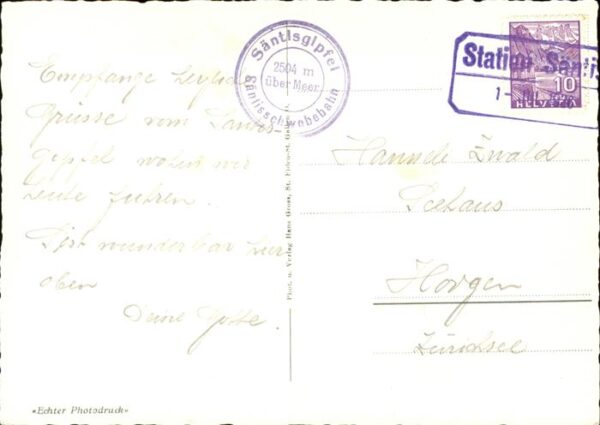 Empfange
Grüsse vom Säntis-
gipfel wohin wir
heute fuhren.
Ist wunderbar hier
oben
Deine
«Echter Photodruck»
Säntisgipfel
2504 m
über Meer
Säntisschwebebahn
Phot. u. Verlag Hans Gross, St. Fiden-St. Gallen
Station Sänti
10
HELVETIA
Zwald
Seehaus
Horgen
Zürichsee